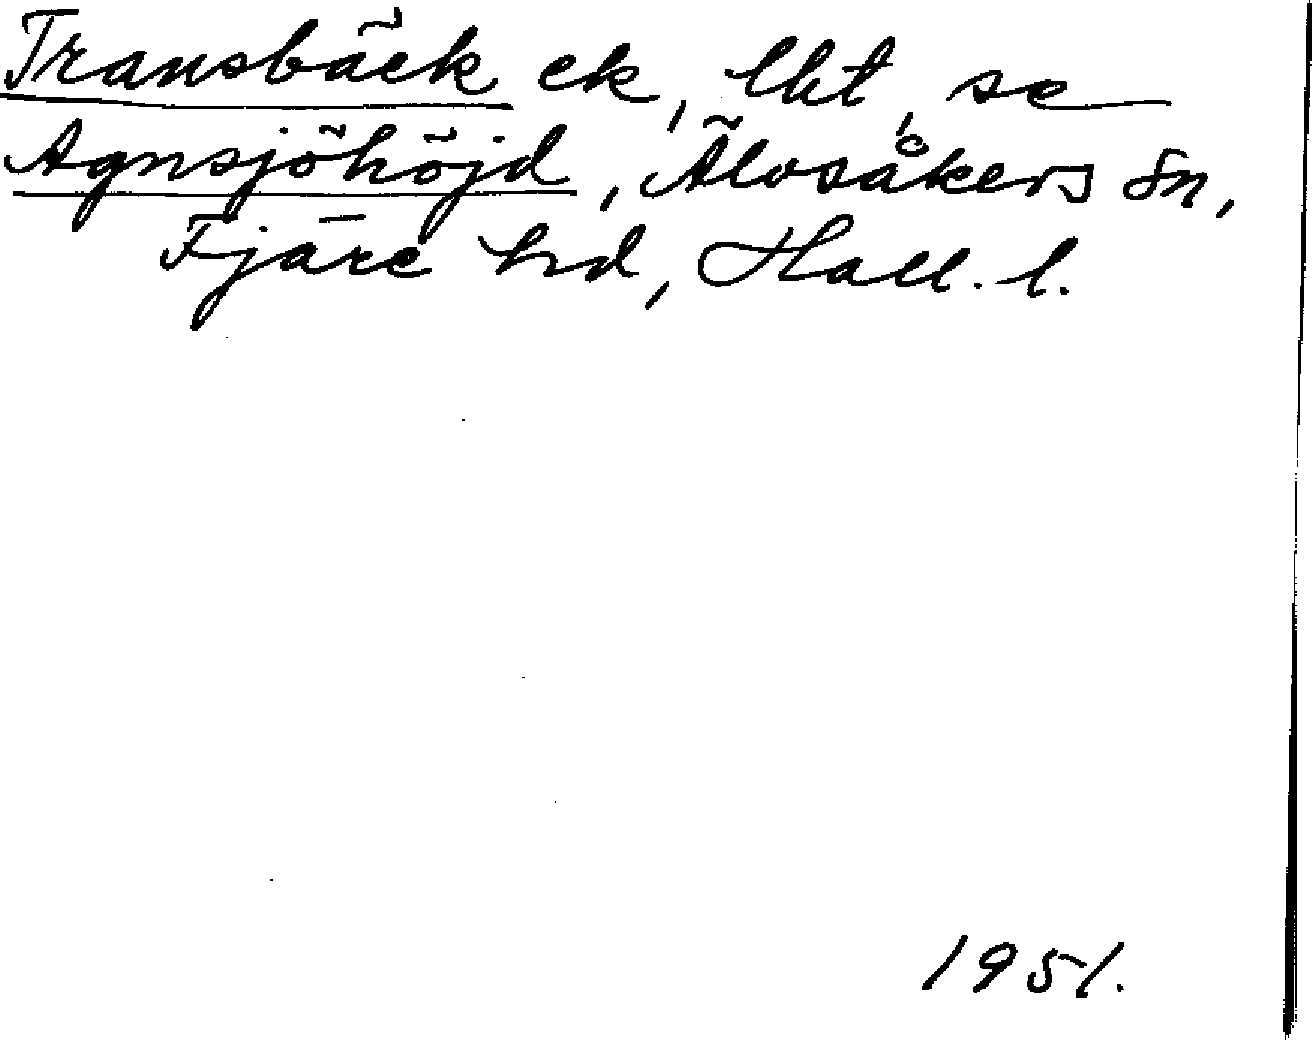 Transbäck ek, lht, se
Agnsjöhöjd, Älvsåkers sn,
Fjäre hd, Hall. l.
1951.